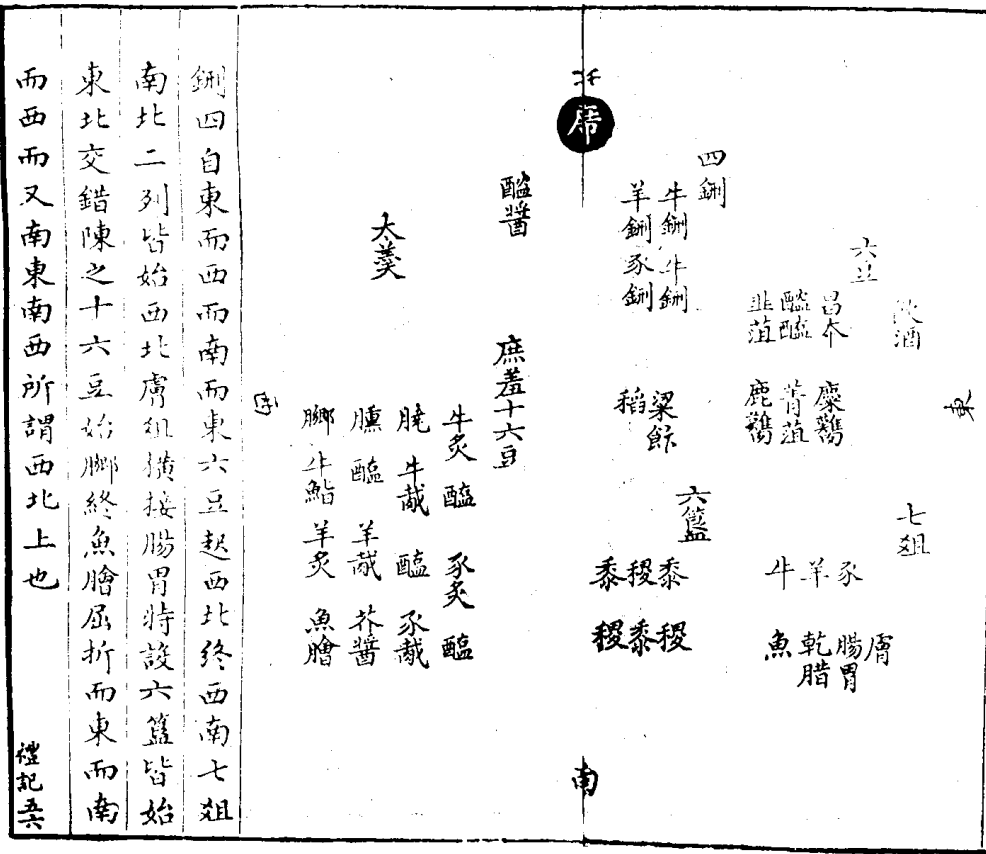 北
席
東
飲酒
六豆
昌本 麋臡
醓醢 菁菹
韭菹 鹿臡
七俎
膚
豕 腸胃
羊 乾腊
牛 魚
四鉶
牛鉶 牛鉶
羊鉶 豕鉶
粱飯
稻
六簋
黍 稷
稷 黍
黍 稷
南
醯醬
太羹
庶羞十六豆
牛炙 醢 豕炙 醢
膮 牛胾 醢 豕胾
臐 醢 羊胾 芥醬
膷 牛鮨 羊炙 魚膾
西
鉶四自東而西而南而東六豆起西北終西南七俎
南北二列皆始西北膚俎橫接腸胃時設六簋皆始
東北交錯陳之十六豆始膷終魚膾屈折而東而南
而西而又南東南西所謂西北上也
禮記五六